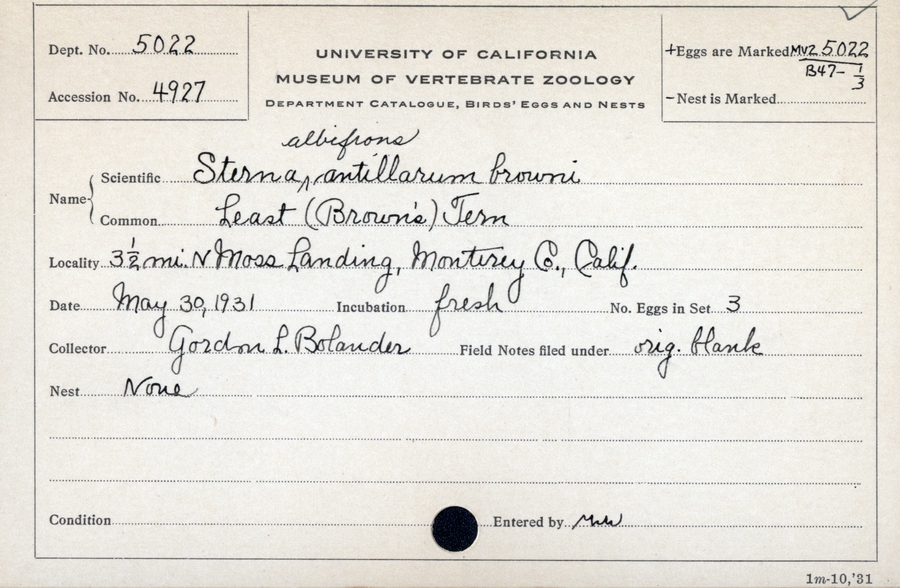 Dept. No. 5022
Accession No. 4927
UNIVERSITY OF CALIFORNIA
MUSEUM OF VERTEBRATE ZOOLOGY
DEPARTMENT CATALOGUE, BIRDS' EGGS AND NESTS
+Eggs are Marked MVZ 5022
B47-1/3
-Nest is Marked
albifrons
Name Scientific Sterna ^ antillarum browni
Common Least (Brown's) Tern
Locality 3 1/2 mi. N Moss Landing, Monterey Co., Calif.
Date May 30, 1931 Incubation fresh No. Eggs in Set 3
Collector Gordon L. Bolander Field Notes filed under orig. blank
Nest None
Condition Entered by
1m-10,'31